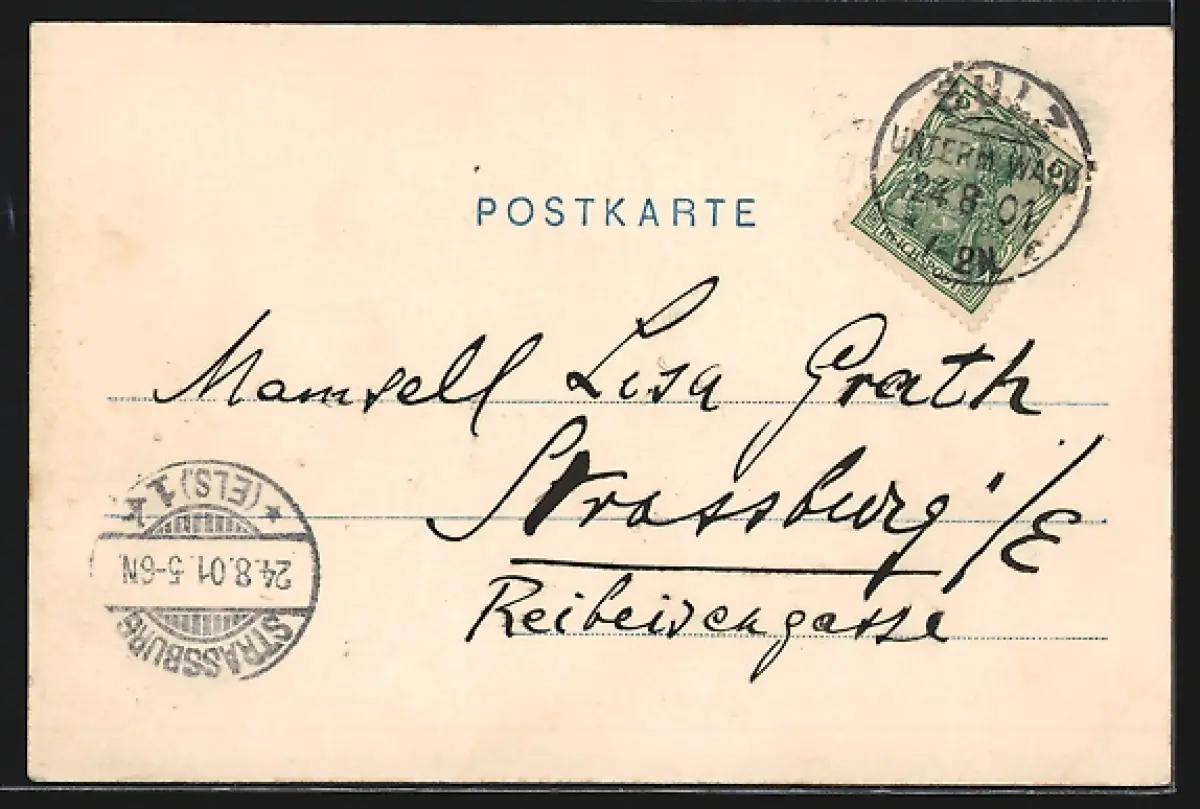 POSTKARTE
SULZ
UNTERM WALD
24.8.01
1-2N.
c
5
REICHSPOST
Mamsell Lisa Grath
Strassburg i/E
Reibeisengasse
STRASSBURG
24.8.01.5-6N.
* (ELS).1 k